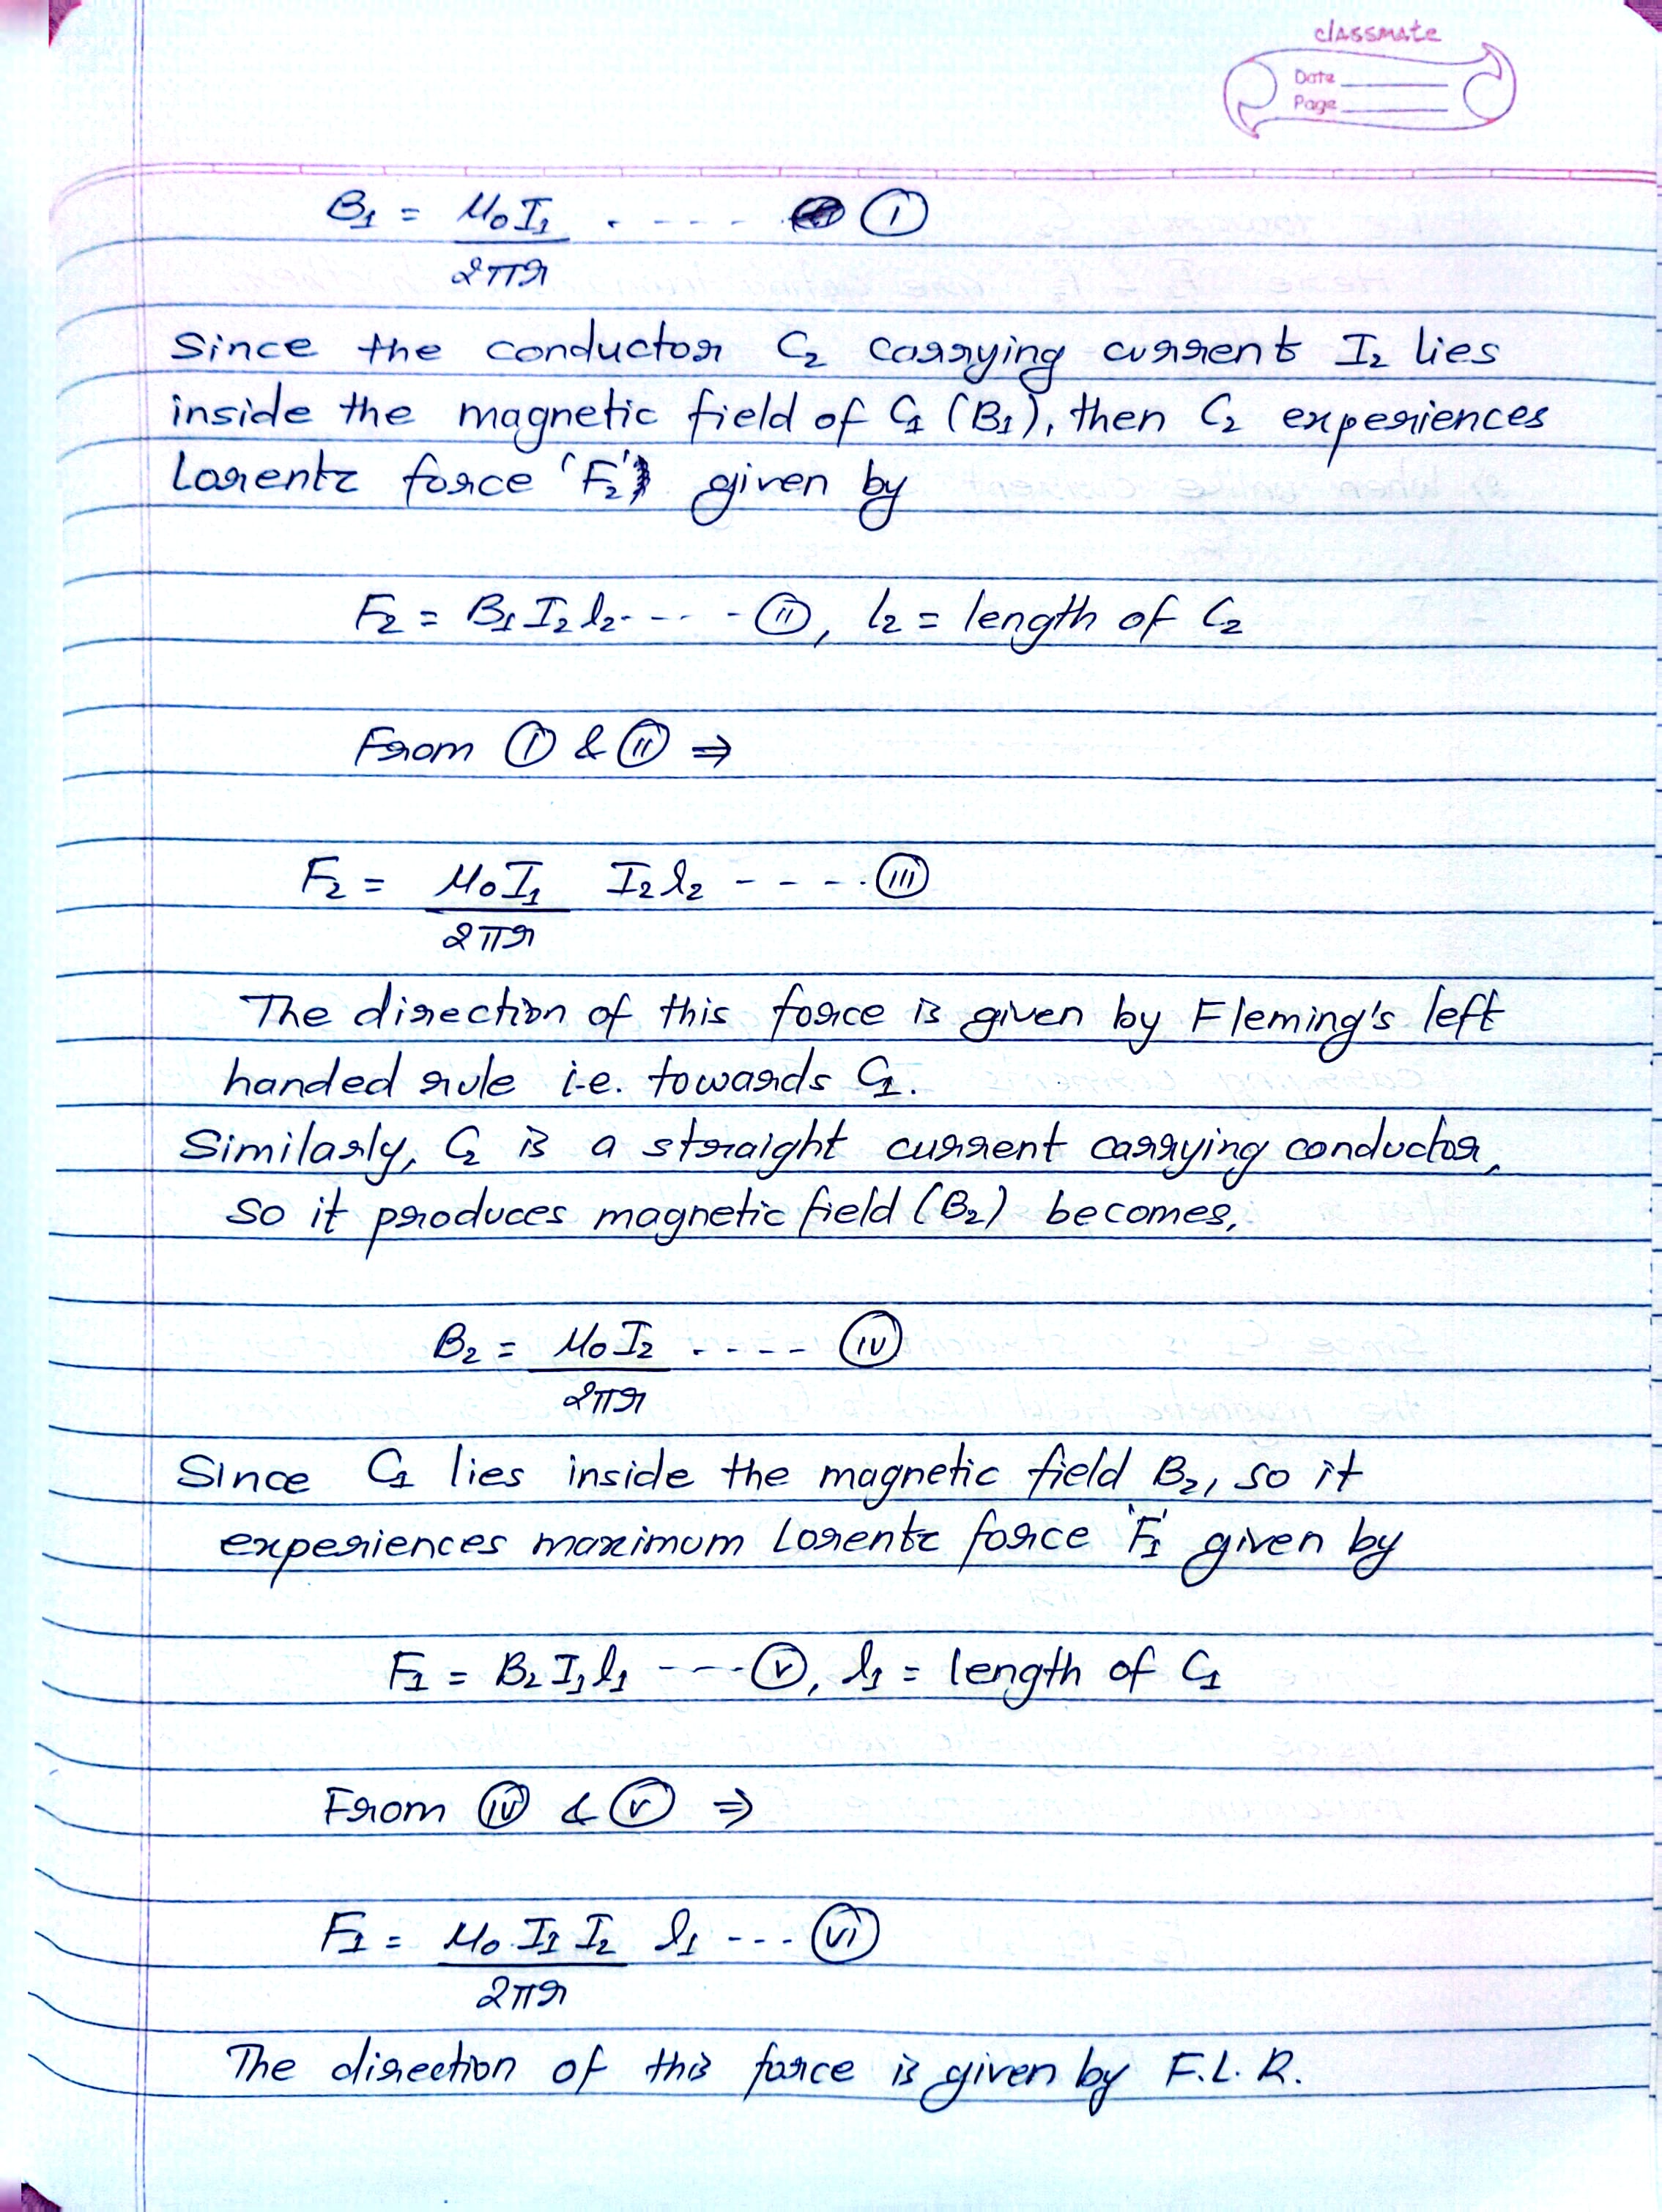 classmate
Date
Page
B₁ = μ₀I₁ . - - - - (i)
2πr
Since the conductor C₂ carrying current I₂ lies
inside the magnetic field of C₁ (B₁), then C₂ experiences
Lorentz force 'F₂' given by
F₂ = B₁ I₂ l₂ - - - - (ii), l₂ = length of C₂
From (i) & (ii) ⇒
F₂ = μ₀I₁ I₂ l₂ - - - - . (iii)
2πr
The direction of this force is given by Fleming's left
handed rule i.e. towards C₁.
Similarly, C₂ is a straight current carrying conductor,
so it produces magnetic field (B₂) becomes,
B₂ = μ₀I₂ . - - - - (iv)
2πr
Since C₁ lies inside the magnetic field B₂, so it
experiences maximum Lorentz force 'F₁' given by
F₁ = B₂ I₁ l₁ - - - - (v), l₁ = length of C₁
From (iv) & (v) ⇒
F₁ = μ₀ I₁ I₂ l₁ - - - (vi)
2πr
The direction of this force is given by F.L.R.